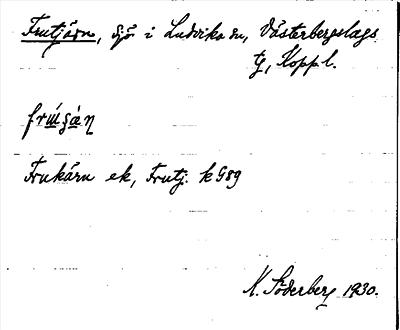 Frutjärn, sjö i Ludvika sn, Västerbergslags
tg, Kopp l.
Frukärn ek, Frutj. k G89
N. Söderberg 1930.